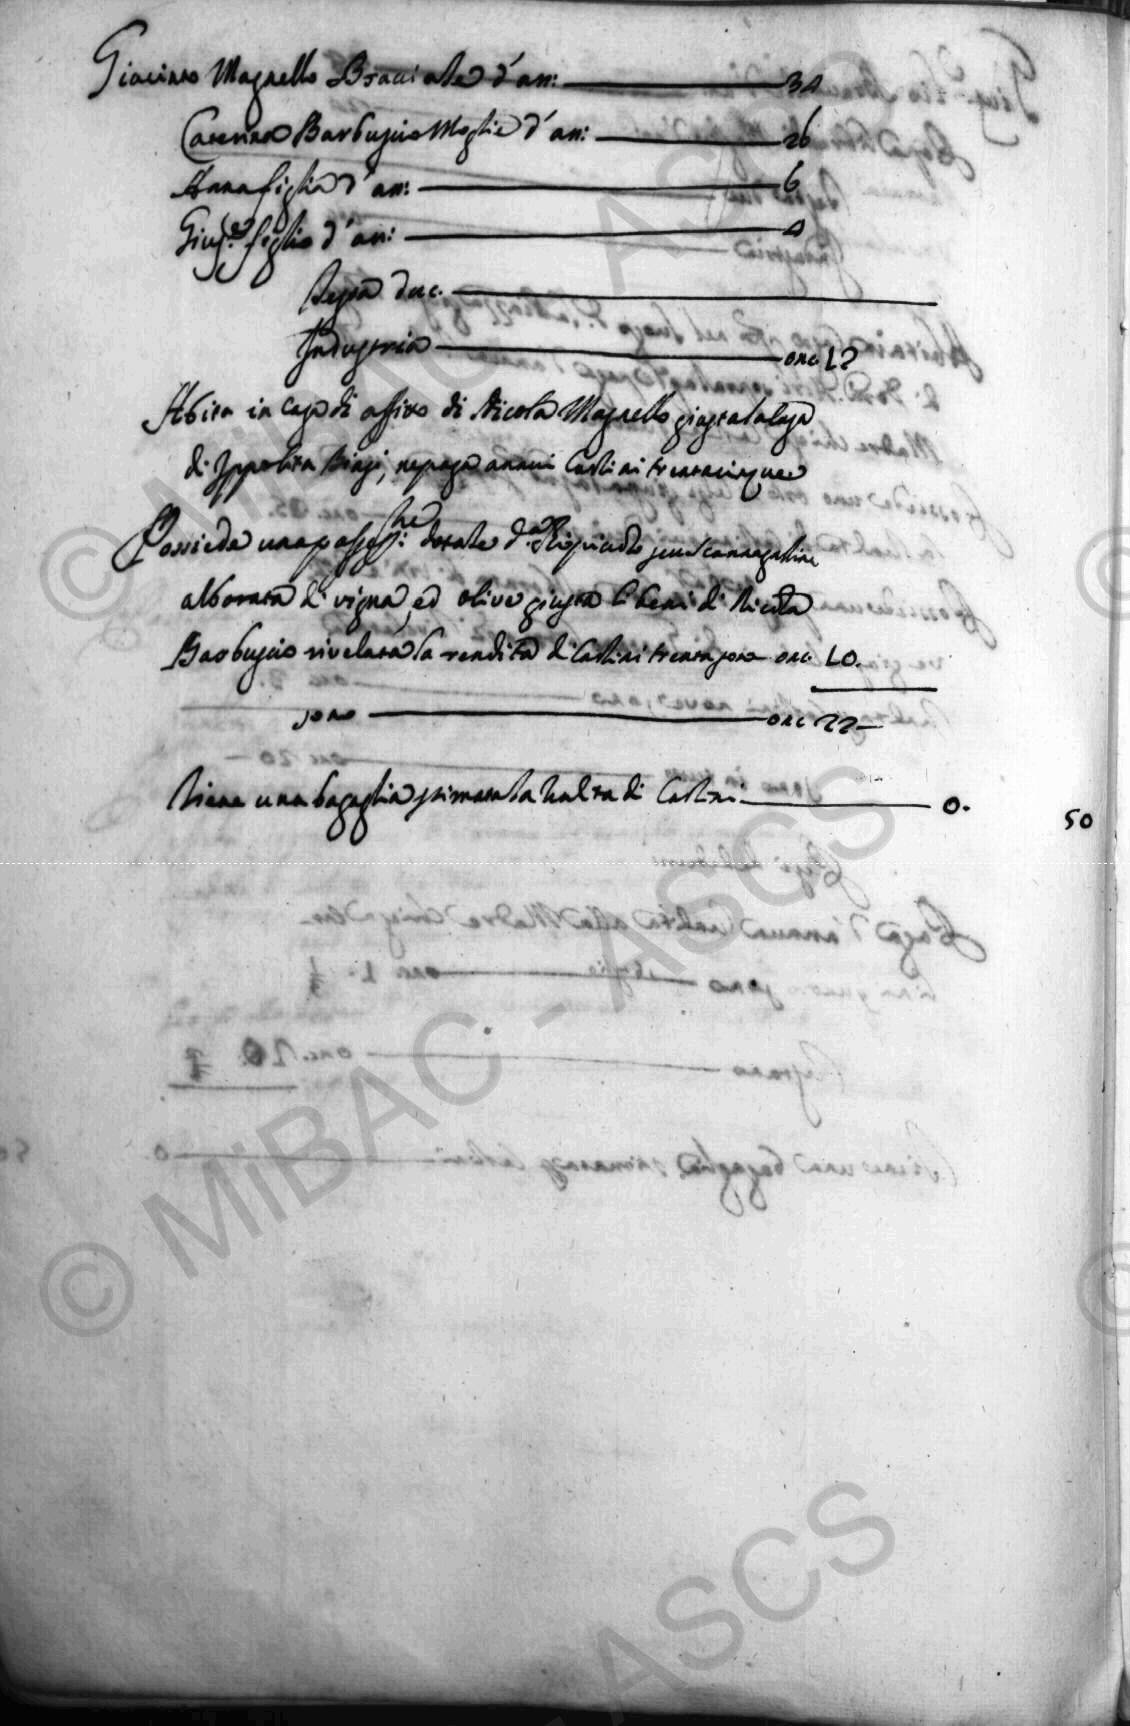 Giacinto Magnello Bracciale d'an: 34
Caterina Barbuscio Moglie d'an: 26
Anna figlia d'an: 6
Giusp.e figlio d'an: 4
Testa duc.
Industria onc. 12
Abita in casa di affitto di Nicola Magnello giusta la casa
di Ippolita Biagi, ne paga annui Carlini trentacinque
Possiede una posses.ne dotale d.a
alborata di vigna, ed olive giusta li beni di Nicola
Barbuscio rivelata la rendita di Carlini trenta sono onc. 10.
sono onc. 22
Tiene una bagaglia stimata la rendita di Carlini 0.
50
© MiBAC - ASCS